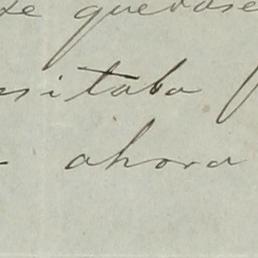 se quedase
sitaba
ahora